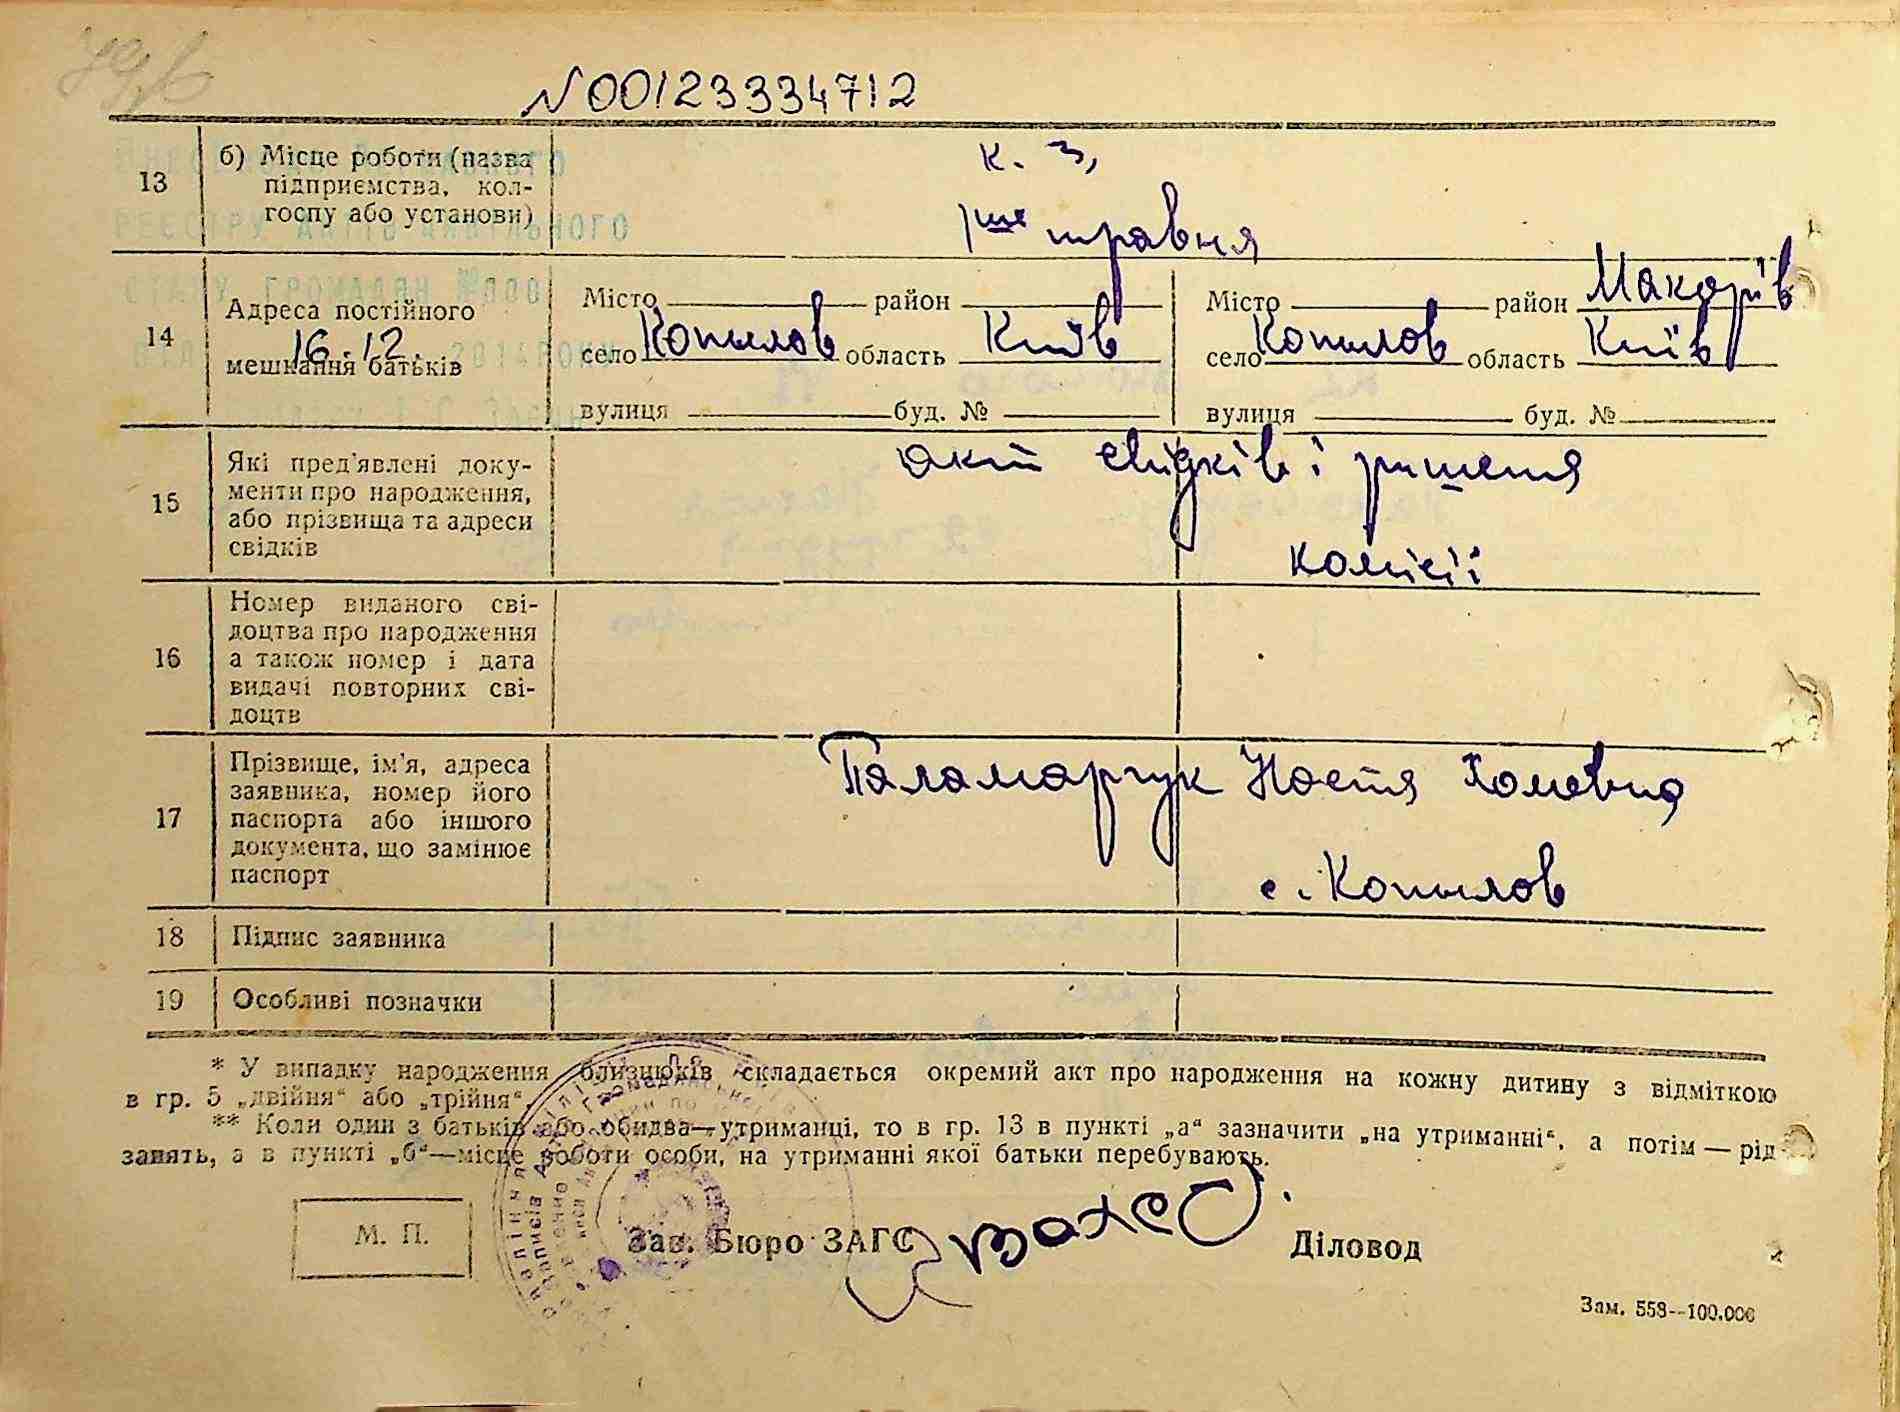 N00123334712
13
б) Місце роботи (назва
підприємства, кол-
госпу або установи)
к. з,
1ше травня
ВНЕСЕНО ДО ДЕРЖАВНОГО
РЕЄСТРУ АКТІВ ЦИВІЛЬНОГО
СТАНУ ГРОМАДЯН №000
16.12. 2014 РОКУ
14
Адреса постійного
мешкання батьків
Місто район
село Копилов область Київ
вулиця буд. №
Місто район Макарів
село Копилов область Київ
вулиця буд. №
15
Які пред'явлені доку-
менти про народження,
або прізвища та адреси
свідків
акт свідків і ришення
комісії
16
Номер виданого сві-
доцтва про народження
а також номер і дата
видачі повторних сві-
доцтв
17
Прізвище, ім'я, адреса
заявника, номер його
паспорта або іншого
документа, що замінює
паспорт
Паламарчук Настя Хомівна
с. Копилов
18
Підпис заявника
19
Особливі позначки
* У випадку народження близнюків складається окремий акт про народження на кожну дитину з відміткою
в гр. 5 „двійня“ або „трійня“.
** Коли один з батьків або обидва—утриманці, то в гр. 13 в пункті „а“ зазначити „на утриманні“, а потім — рід
занять, а в пункті „б“—місце роботи особи, на утриманні якої батьки перебувають.
М. П.
Зав. Бюро ЗАГС
Діловод
Зам. 558--100.000